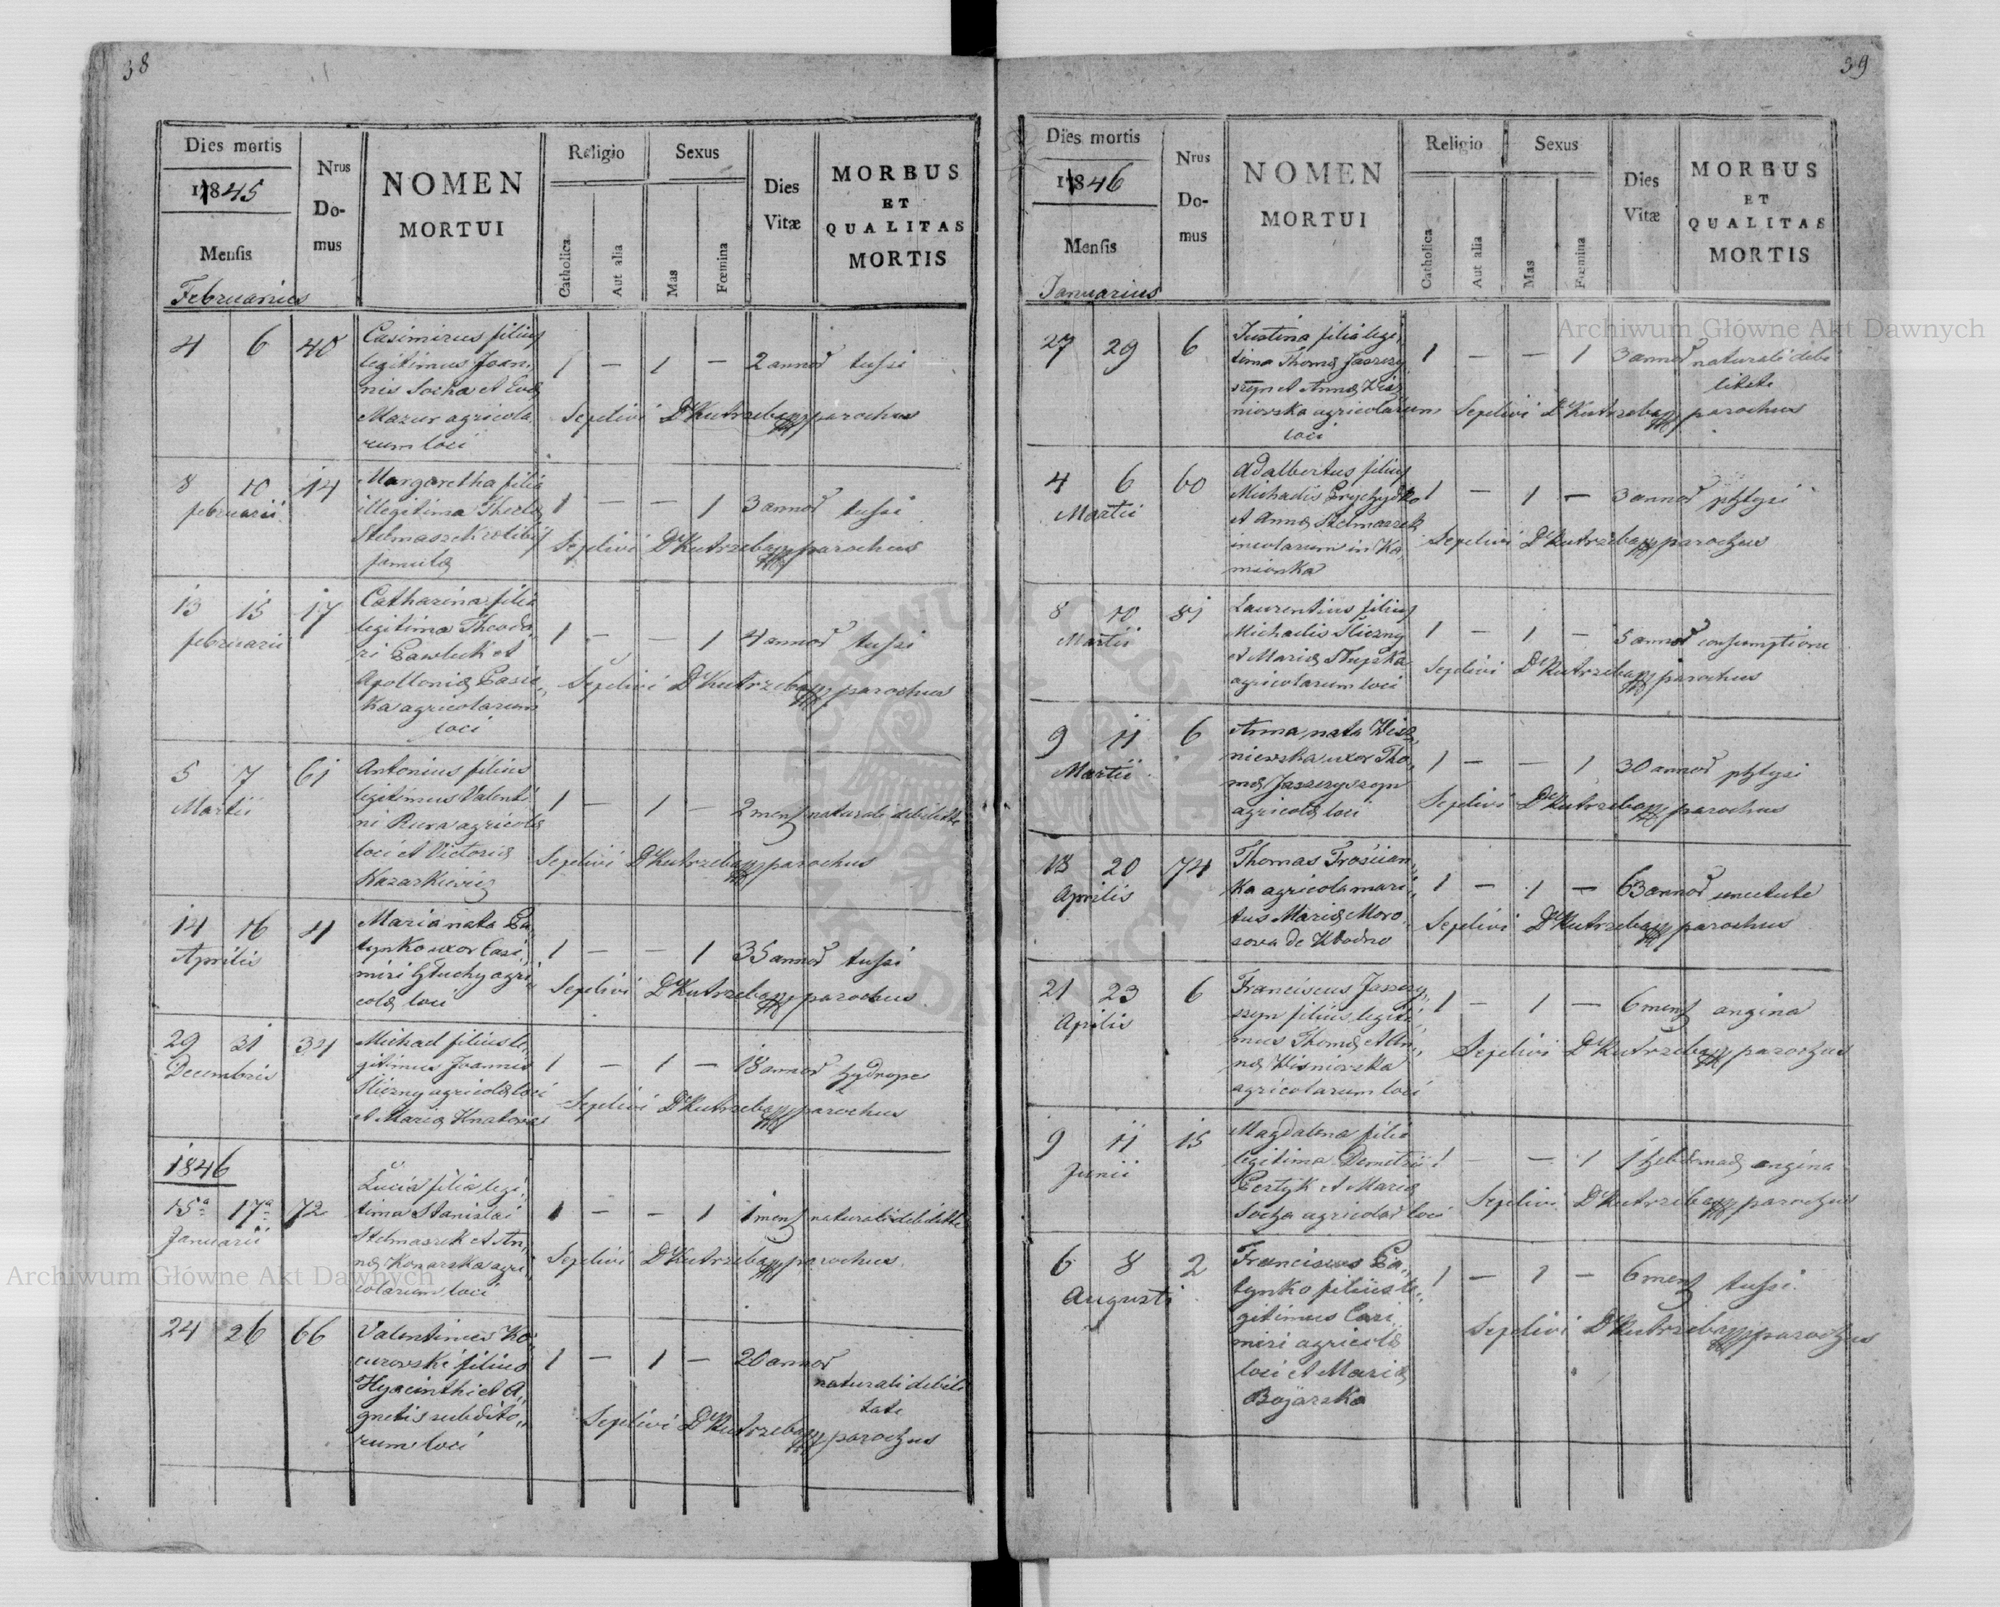 38
Dies mortis
1845
Mensis
Februarius
Nrus Do-mus
NOMEN
MORTUI
Religio
Catholica
Aut alia
Sexus
Mas
Fœmina
Dies Vitæ
MORBUS
ET
QUALITAS
MORTIS
4 6 40 Casimirus filius
legitimus Joan,
nis Socha et Evæ
Mazur agricola,
rum loci
1 — 1 — 2 annor tussi
Sepelivi Dr Kutrzeba parochus
8 10 14
februarii
Margaretha filia
illegitima Theclæ
Stelmaszek cælibis
famulæ
1 — — 1 3 annor tussi
Sepelivi Dr Kutrzeba parochus
13 15 17
februarii
Catharina filia
legitima Theodo,
ri Pawluk et
Apolloniæ Pasie,
ka agricolarum
loci
1 — — 1 4 annor tussi
Sepelivi Dr Kutrzeba parochus
5 7 61
Martii
Antonius filius
legitimus Valenti
ni Rura agricolæ
loci et Victoriæ
Nazarkiewicz
1 — 1 — 2 mens naturali debilitte
Sepelivi Dr Kutrzeba parochus
14 16 4
Aprilis
Maria nata Ba,
tynko uxor Casi,
miri Głuchy agri,
colæ loci
1 — — 1 35 annor tussi
Sepelivi Dr Kutrzeba parochus
29 31 34
Decembris
Michael filius le,
gitimus Joannis
Sliczny agricolæ loci
et Mariæ Knatowa
1 — 1 — 18 annor hydrope
Sepelivi Dr Kutrzeba parochus
1846
15a 17a 72
Januarii
Lucia filia legi,
tima Stanislai
Stelmaszek et An,
næ Konarska agri,
colarum loci
1 — — 1 1 mens naturali debilitte
Sepelivi Dr Kutrzeba parochus
24 26 66
Valentinus Ko,
curowski filius
Hyacinthi et A,
gnetis subdito,
rum loci
1 — 1 — 20 annor
naturali debili
tate
Sepelivi Dr Kutrzeba parochus
39
Dies mortis
1846
Mensis
Januarius
Nrus Do-mus
NOMEN
MORTUI
Religio
Catholica
Aut alia
Sexus
Mas
Fœmina
Dies Vitæ
MORBUS
ET
QUALITAS
MORTIS
27 29 6
Justina filia legi,
tima Thomæ Jaszczy
szyn et Annæ Wisz
niewska agricolarum
loci
1 — — 1 3 annor naturali debi
litate
Sepelivi Dr Kutrzeba parochus
4 6 60
Martii
Adalbertus filius
Michaelis
et Annæ Stelmaszek
incolarum in Ka,
mionka
1 — 1 — 3 annor phtysi
Sepelivi Dr Kutrzeba parochus
8 10 81
Martii
Laurentius filius
Michaelis Sliczny
et Mariæ Słupska
agricolarum loci
1 — 1 — 5 annor consumptione
Sepelivi Dr Kutrzeba parochus
9 11 6
Martii
Anna nata Wisz,
niewska uxor Tho,
mæ Jaszczyszyn
agricolæ loci
1 — — 1 30 annor phtysi
Sepelivi Dr Kutrzeba parochus
18 20 74
Aprilis
Thomas Trościan,
ka agricola mari,
tus Mariæ Moro,
sowa de Kłodno
1 — 1 — 63 annor senectute
Sepelivi Dr Kutrzeba parochus
21 23 6
Aprilis
Franciscus Jaszczy,
szyn filius legiti,
mus Thomæ et An,
næ Wisniowska
agricolarum loci
1 — 1 — 6 mens angina
Sepelivi Dr Kutrzeba parochus
9 11 15
Junii
Magdalena filia
legitima Demetrii
Pertyk et Mariæ
Socha agricolar loci
1 — — 1 1 hebdomad angina
Sepelivi Dr Kutrzeba parochus
6 8 2
Augusti
Franciscus Ba,
tynko filius le,
gitimus Casi,
miri agricolæ
loci et Mariæ
Bojarska
1 — 1 — 6 mens tussi
Sepelivi Dr Kutrzeba parochus
Archiwum Główne Akt Dawnych
Archiwum Główne Akt Dawnych
ARCHIWUM GŁÓWNE AKT DAWNYCH